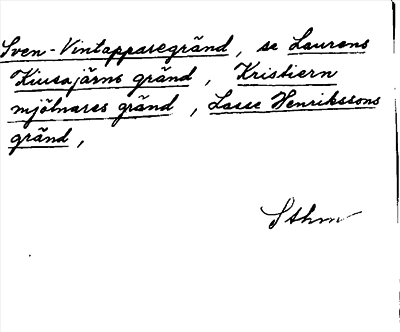 Sven-Vintapparegränd, se Laurens
Kiusajärns gränd, Kristiern
mjölnares gränd, Lasse Henrikssons
gränd,
Sthm